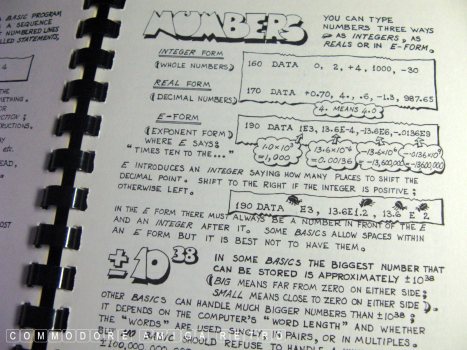 BASIC PROGRAM
A SEQUENCE
NUMBERED LINES
CALLED STATEMENTS,
4
THE
SOMETHING.
FOR
ACTION ;
INSTRUCTIONS.
etc.
NUMBERS
YOU CAN TYPE
NUMBERS THREE WAYS
AS INTEGERS, AS
REALS OR IN E-FORM.
INTEGER FORM
(WHOLE NUMBERS)
160 DATA 0, 2, +4, 1000, -30
REAL FORM
(DECIMAL NUMBERS)
170 DATA +0.70, 4., .6, -1.3, 987.65
4. MEANS 4.0
E-FORM
(EXPONENT FORM)
WHERE E SAYS:
"TIMES TEN TO THE..."
190 DATA 1E3, 13.6E-4, -13.6E6, -.0136E9
1.0×10³
=1,000
13.6×10⁻⁴
=0.00136
-13.6×10⁶
=-13,600,000
-.0136×10⁹
=-13600000
E INTRODUCES AN INTEGER SAYING HOW MANY PLACES TO SHIFT THE
DECIMAL POINT. SHIFT TO THE RIGHT IF THE INTEGER IS POSITIVE;
OTHERWISE LEFT.
190 DATA E3, 13.6E1.2, 13.6 E 2
IN THE E FORM THERE MUST ALWAYS BE A NUMBER IN FRONT OF THE E
AND AN INTEGER AFTER IT. SOME BASICS ALLOW SPACES WITHIN
AN E FORM BUT IT IS BEST NOT TO HAVE THEM.
±10³⁸
IN SOME BASICS THE BIGGEST NUMBER THAT
CAN BE STORED IS APPROXIMATELY ±10³⁸
(BIG MEANS FAR FROM ZERO ON EITHER SIDE;
SMALL MEANS CLOSE TO ZERO ON EITHER SIDE).
OTHER BASICS CAN HANDLE MUCH BIGGER NUMBERS THAN ±10³⁸;
IT DEPENDS ON THE COMPUTER'S "WORD LENGTH" AND WHETHER
THE "WORDS" ARE USED SINGLY, IN PAIRS, OR IN MULTIPLES.
WOULD REFUSE TO HANDLE A
COMMODORE AMIGA RETRO